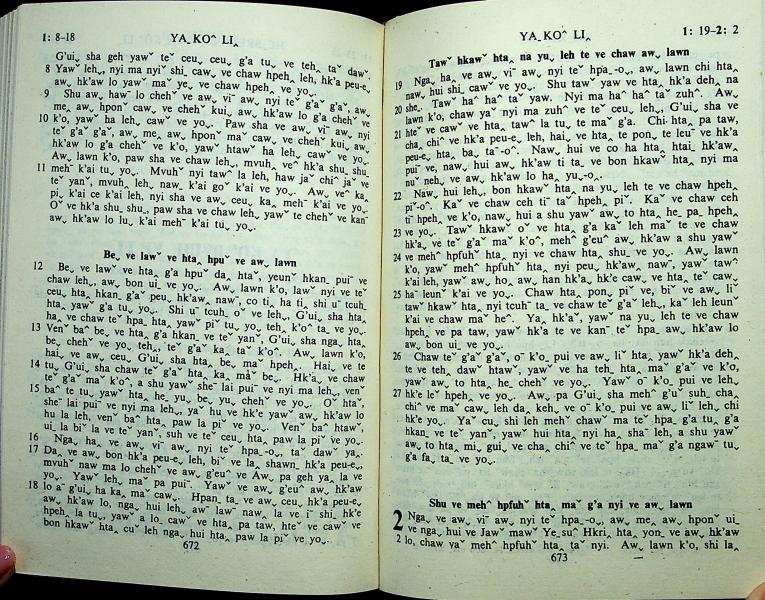 1: 8–18 YA_ KOˆ LI‸
G'ui‸ sha geh yawˇ teˇ ceu‸ ceu‸ g'a tu‸ ve teh‸ ta˯ dawˇ.
8 Yawˇ leh‸, nyi ma nyiˇ shi‸ caw‸ ve chaw hpeh‸ leh, hk'a peu-e‸
aw‸ hk'aw lo yawˇ maˇ ye‸ ve chaw hpeh‸ ve yo‸.
9 Shu aw‸ hawˇ lo chehˇ ve aw‸ viˉ aw‸ nyi teˇ g'aˇ g'aˇ, aw‸
me‸ aw‸ hponˇ caw‸ ve chehˇ kui‸ aw‸ hk'aw lo g'a chehˇ ve
10 k'o‸, yawˇ ha leh‸ caw‸ ve yo‸. Paw sha ve aw‸ viˉ aw‸ nyi
teˇ g'aˇ g'aˇ, aw‸ me‸ aw‸ hponˇ maˇ caw‸ ve chehˇ kui‸ aw‸
hk'aw lo g'a chehˇ ve k'o‸, yawˇ htawˇ ha leh‸ caw‸ ve yo‸.
Aw‸ lawn k'o‸, paw sha ve chaw leh‸ mvuhˇ veˆ hk'a shu‸ shu‸
11 mehˉ k'ai tu‸ yo‸. Mvuhˇ nyi tawˆ la leh‸ haw jaˇ chiˆ jaˇ ve
teˇ yanˇ, mvuhˇ leh‸ nawˇ k'ai goˇ k'ai ve yo‸. Aw‸ veˆ ka‸
pi‸ k'ai ce k'ai leh, nyi sha ve aw‸ ceu‸ ka‸ mehˉ k'ai ve yo‸.
Oˇ ve hk'a shu‸ shu‸, paw sha ve chaw leh‸ yawˇ te chehˇ ve kanˉ
aw‸ hk'aw lo lu‸ k'ai mehˉ k'ai tu‸ yo‸.
Be‸ ve lawˇ ve hta‸ hpuˇ ve aw‸ lawn
12 Be‸ ve lawˇ ve hta‸ g'a hpuˇ da‸ htaˇ, yeunˇ hkan_ puiˉ ve
chaw leh‸, aw‸ bon ui‸ ve yo‸. Aw‸ lawn k'o‸, lawˇ nyi ve teˇ
ceu‸ hta‸ hkan_ g'aˇ peu‸ hk'aw‸ nawˇ, co ti‸ ha ti‸ shi uˉ tcuh‸
hta‸ yawˇ g'a tu‸ yo‸. Shi uˉ tcuh‸ oˇ ve leh‸, G'ui‸ sha hta‸
ha‸ ve chaw teˇ hpa_ hta‸ yawˇ piˇ tu‸ yo‸ teh‸ k'oˆ ta‸ ve yo‸.
13 Venˇ baˆ beˬ ve hta‸ g'a hkan_ ve teˇ yanˇ, G'ui‸ sha nga_ hta‸
be‸ chehˇ ve yo‸ teh‸, teˇ g'aˇ ka‸ taˇ k'oˆ. Aw‸ lawn k'o‸,
hai‸ ve aw‸ ceu‸ G'ui‸ sha hta‸ be‸ maˇ hpeh‸. Hai‸ ve te
14 tu‸ G'ui‸ sha chaw teˇ g'aˇ hta‸ ka‸ maˇ be‸. Hk'a‸ ve chaw
teˇ g'aˇ ma k'oˆ, a shu yawˇ sheˉ lai puiˉ ve nyi ma leh‸, venˇ
15 baˆ te tu‸ yawˇ hta‸ he‸ yu‸ be‸ yu‸ chehˇ ve yo‸. Oˇ htaˇ,
sheˉ lai puiˉ ve nyi ma leh‸, yaˇ hu ve hk'e yawˇ aw‸ hk'aw lo
hu la leh, venˇ baˆ hta‸ paw la piˇ ve yo‸. Venˇ baˆ htawˇ,
ui‸ la biˇ la ve teˇ yanˇ, suh ve teˇ ceu‸ hta‸ paw la piˇ ve yo‸.
16 Nga‸ ha‸ ve aw‸ viˉ aw‸ nyi teˇ hpa_-o‸, ta˯ dawˇ ya‸.
17 Da‸ ve aw‸ bon hk'a peu-e‸ leh, biˇ ve la‸ shawn_ hk'a peu-e‸,
mvuhˇ naw ma lo chehˇ ve aw‸ g'euˆ ve Aw‸ pa geh ya‸ la ve
yo‸. Yawˇ leh‸ maˇ pa puiˉ. Yawˇ ve aw‸ g'euˆ aw‸ hk'aw
18 lo aˉ g'ui‸ ha ka‸ ma caw‸. Hpan_ ta_ ve aw‸ ceu‸ hk'a peu-e‸
aw‸ hk'aw lo, nga‸ hui leh‸ awˇ lawˇ naw‸ la ve iˉ shi_ hk'e
hpeh‸ la tu‸, yawˇ a lo_ cawˇ ve hta‸ pa taw, hteˇ ve caw‸ ve
bon hkawˇ hta‸ cuˇ leh nga‸ hui hta‸ paw la piˇ ve yo‸.
672
YA_ KOˆ LI‸ 1: 19–2: 2
Tawˇ hkawˇ hta‸ na yu‸ leh te ve chaw aw‸ lawn
19 Nga‸ ha‸ ve aw‸ viˉ aw‸ nyi teˇ hpa_-o‸, aw‸ lawn chi hta‸
naw‸ hui shi‸ caw‸ ve yo‸. Shu tawˇ yawˇ ve hta‸ hk'a deh‸ na
20 she_. Tawˇ haˆ haˆ taˇ yaw. Nyi ma haˆ haˆ taˇ zuhˆ. Aw‸
lawn k'o‸, chaw yaˇ nyi ma zuhˆ ve teˇ ceu‸ leh‸, G'ui‸ sha ve
21 hteˇ ve cawˇ ve hta‸ tawˇ la tu‸ te maˇ g'a. Chi hta‸ pa taw,
cha‸ chiˆ ve hk'a peu-e‸ leh, hai‸ ve hta‸ te pon_ te leuˉ ve hk'a
peu-e‸ hta‸ ba‸ ta˯-oˆ. Naw‸ hui ve co ha hta‸ htai_ hk'aw‸
puiˉ ve, naw‸ hui aw‸ hk'aw ti ta_ ve bon hkawˇ hta‸ nyi ma
nuˇ nehˬ ve aw‸ hk'aw lo ha‸ yu‸-o‸.
22 Naw‸ hui leh‸, bon hkawˇ hta‸ na yu‸ leh te ve chaw hpeh‸
piˇ-oˆ. Kaˇ ve chaw ceh tiˉ taˇ hpeh‸ piˇ. Kaˇ ve chaw ceh
tiˉ hpeh‸ ve k'o, nawˬ hui a shu yawˇ aw‸ to hta‸ he_ pa_ hpeh‸
23 ve yo‸. Tawˇ hkawˇ oˇ ve hta‸ g'a kaˇ leh maˇ te ve chaw
hk'a‸ ve teˇ g'aˇ maˇ k'oˆ, mehˆ g'euˇ aw‸ hk'aw a shu yawˇ
24 ve mehˆ hpfuhˇ hta‸ nyi ve chaw hta‸ shu_ ve yo‸. Aw‸ lawn
k'o, yawˇ mehˆ hpfuhˇ hta‸ nyi peu‸ hk'aw‸ nawˇ, yawˇ tawˆ
k'ai leh, yawˇ aw‸ ho‸ aw‸ han hk'a‸ hk'e caw‸ ve hta‸ teˇ caw‸
25 haˉ leunˇ k'ai ve yo‸. Chaw hta‸ pon_ piˇ ve, biˇ ve aw‸ liˇ
tawˇ hkawˇ hta‸ nyi tcuhˇ ta_ ve chaw teˇ g'aˇ leh‸, kaˇ leh leunˇ
k'ai ve chaw maˇ heˆ. Ya‸ hk'aˇ, yawˇ na yu‸ leh te ve chaw
hpeh‸ ve pa taw, yawˇ hk'a te ve kanˉ teˇ hpa_ aw‸ hk'aw lo
aw‸ bon ui‸ ve yo‸.
26 Chaw teˇ g'aˇ g'aˇ, oˉ k'o_ pui ve aw‸ liˇ hta‸ yawˇ hk'a deh‸
te ve teh‸ dawˇ htawˇ, yawˇ ve ha teh_ hta‸ maˇ g'aˇ ve k'o,
yawˇ aw‸ to hta‸ he_ chehˇ ve yo‸. Yawˇ oˉ k'o_ pui ve leh‸
27 hk'e leˇ hpeh‸ ve yo‸. Aw‸ pa G'ui‸ sha mehˆ g'uˇ suh_ cha‸
chiˆ ve maˇ caw‸ leh da‸ keh‸ ve oˉ k'o_ pui ve aw‸ liˇ leh‸ chi
hk'e yo‸. Yaˇ cu‸ shi leh mehˇ chawˇ ma teˇ hpa_ g'a tu‸ g'a
hkan_ ve teˇ yanˇ, yawˇ hui hta‸ nyi ha‸ shaˇ leh, a shu yawˇ
aw‸ to hta‸ mi‸ gui‸ ve cha‸ chiˆ ve teˇ hpa_ maˇ g'a ngawˇ tu‸
g'a fa‸ ta_ ve yo‸.
Shu ve mehˆ hpfuhˇ hta‸ maˇ g'a nyi ve aw‸ lawn
2 Nga‸ ve aw‸ viˉ aw‸ nyi teˇ hpa_-o‸, aw‸ me‸ aw‸ hponˇ ui_
ve nga‸ hui ve Jawˇ mawˇ Ye‸ suˆ Hkri‸ hta‸ yon_ ve aw‸ hk'aw
2 lo, chaw yaˇ mehˆ hpfuhˇ hta‸ ta˯ nyi. Aw‸ lawn k'o, shi la‸
673